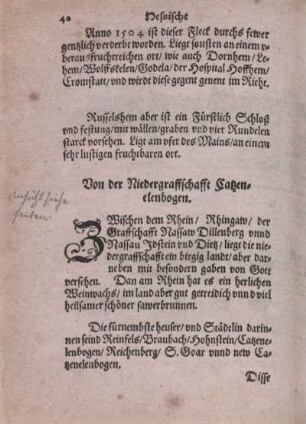 40 Hessische
Anno 1504 ist dieser Fleck durchs fewer
gentzlich verderbt worden. Liegt sonsten an einem v-
beraus fruchtreichen ort/ wie auch Dornhem/ Le-
hem/ Wolffskelen/ Godela/ der Hospital Hoffhem/
Cromstatt/ vnd wirdt diese gegent genent im Richt.
Russelshem aber ist ein Fürstlich Schloß
vnd festung/ mit wällen/ graben vnd vier Rundelen
starck vorsehen. Ligt am vfer des Mains/ an einem
sehr lustigen fruchtbaren ort.
Von der Niedergraffschafft Catzen-
elenbogen.
ZWischen dem Rhein/ Rhingaw/ der
Graffschafft Nassaw Dillenberg vnnd
Nassau Idstein vnd Dietz/ liegt die nie-
dergraffschafft ein birgig landt/ aber dar-
neben mit besondern gaben von Gott
versehen. Dan am Rhein hat es ein herlichen
Weinwachs/ im land aber gut getreidich vnn d viel
heilsamer schöner sawerbrunnen.
Die fürnembste heuser/ vnd Städelin darin-
nen seind Reinfels/ Braubach/ Hohnstein/ Catzen-
elenbogen/ Reichenberg/ S. Goar vnnd new Ca-
tzenelenbogen.
Disse